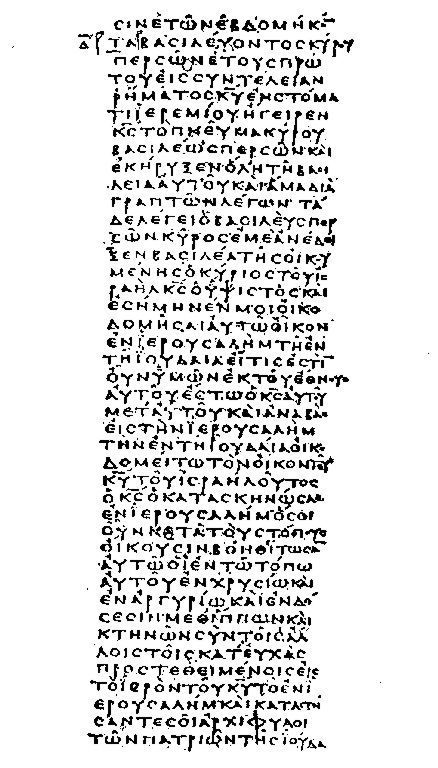 ϹΙΝ ΕΤΩΝ ΕΒΔΟΜΗΚΟΝ
ΤΑ ΒΑϹΙΛΕΥΟΝΤΟϹ ΚΥΡΟΥ
ΠΕΡϹΩΝ ΕΤΟΥϹ ΠΡΩ
ΤΟΥ ΕΙϹ ϹΥΝΤΕΛΕΙΑΝ
ΡΗΜΑΤΟϹ ΚΥ ΕΝ ϹΤΟΜΑ
ΤΙ ΙΕΡΕΜΙΟΥ ΗΓΕΙΡΕΝ
ΚϹ ΤΟ ΠΝΕΥΜΑ ΚΥΡΟΥ
ΒΑϹΙΛΕΩϹ ΠΕΡϹΩΝ ΚΑΙ
ΕΚΗΡΥΞΕΝ ΟΛΗ ΤΗ ΒΑϹΙ
ΛΕΙΑ ΑΥΤΟΥ ΚΑΙ ΑΜΑ ΔΙΑ
ΓΡΑΠΤΩΝ ΛΕΓΩΝ ΤΑ
ΔΕ ΛΕΓΕΙ Ο ΒΑϹΙΛΕΥϹ ΠΕΡ
ϹΩΝ ΚΥΡΟϹ ΕΜΕ ΑΝΕΔΕΙ
ΞΕΝ ΒΑϹΙΛΕΑ ΤΗϹ ΟΙΚΟΥ
ΜΕΝΗϹ Ο ΚΥΡΙΟϹ ΤΟΥ ΙϹ
ΡΑΗΛ ΚϹ Ο ΥΨΙϹΤΟϹ ΚΑΙ
ΕϹΗΜΗΝΕΝ ΜΟΙ ΟΙΚΟ
ΔΟΜΗϹΑΙ ΑΥΤΩ ΟΙΚΟΝ
ΕΝ ΙΕΡΟΥϹΑΛΗΜ ΤΗ ΕΝ
ΤΗ ΙΟΥΔΑΙΑ ΕΙ ΤΙϹ ΕϹΤΙΝ
ΟΥΝ ΥΜΩΝ ΕΚ ΤΟΥ ΕΘΝΟΥϹ
ΑΥΤΟΥ ΕϹΤΩ Ο ΚϹ ΑΥΤΟΥ
ΜΕΤ ΑΥΤΟΥ ΚΑΙ ΑΝΑΒΑϹ
ΕΙϹ ΤΗΝ ΙΕΡΟΥϹΑΛΗΜ
ΤΗΝ ΕΝ ΤΗ ΙΟΥΔΑΙΑ ΟΙΚΟ
ΔΟΜΕΙΤΩ ΤΟΝ ΟΙΚΟΝ ΤΟΥ
ΚΥ ΤΟΥ ΙϹΡΑΗΛ ΟΥΤΟϹ
Ο ΚϹ Ο ΚΑΤΑϹΚΗΝΩϹΑϹ
ΕΝ ΙΕΡΟΥϹΑΛΗΜ ΟϹΟΙ
ΟΥΝ ΚΑΤΑ ΤΟΥϹ ΤΟΠΟΥϹ
ΟΙΚΟΥϹΙΝ ΒΟΗΘΙΤΩϹΑΝ
ΑΥΤΩ ΟΙ ΕΝ ΤΩ ΤΟΠΩ
ΑΥΤΟΥ ΕΝ ΧΡΥϹΙΩ ΚΑΙ
ΕΝ ΑΡΓΥΡΙΩ ΚΑΙ ΕΝ ΔΟ
ϹΕϹΙΝ ΜΕΘ ΙΠΠΩΝ ΚΑΙ
ΚΤΗΝΩΝ ϹΥΝ ΤΟΙϹ ΑΛ
ΛΟΙϹ ΤΟΙϹ ΚΑΤ ΕΥΧΑϹ
ΠΡΟϹΤΕΘΕΙΜΕΝΟΙϹ ΕΙϹ
ΤΟ ΙΕΡΟΝ ΤΟΥ ΚΥ ΤΟ ΕΝ Ι
ΕΡΟΥϹΑΛΗΜ ΚΑΙ ΚΑΤΑϹΤΗ
ϹΑΝΤΕϹ ΟΙ ΑΡΧΙΦΥΛΟΙ
ΤΩΝ ΠΑΤΡΙΩΝ ΤΗϹ ΙΟΥΔΑ